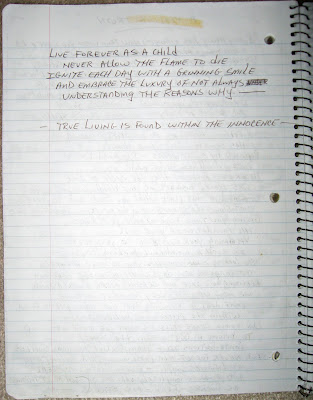 LIVE FOREVER AS A CHILD
NEVER ALLOW THE FLAME TO DIE
IGNITE EACH DAY WITH A GRINNING SMILE
AND EMBRACE THE LUXURY OF NOT ALWAYS
UNDERSTANDING THE REASONS WHY —
- TRUE LIVING IS FOUND WITHIN THE INNOCENCE -